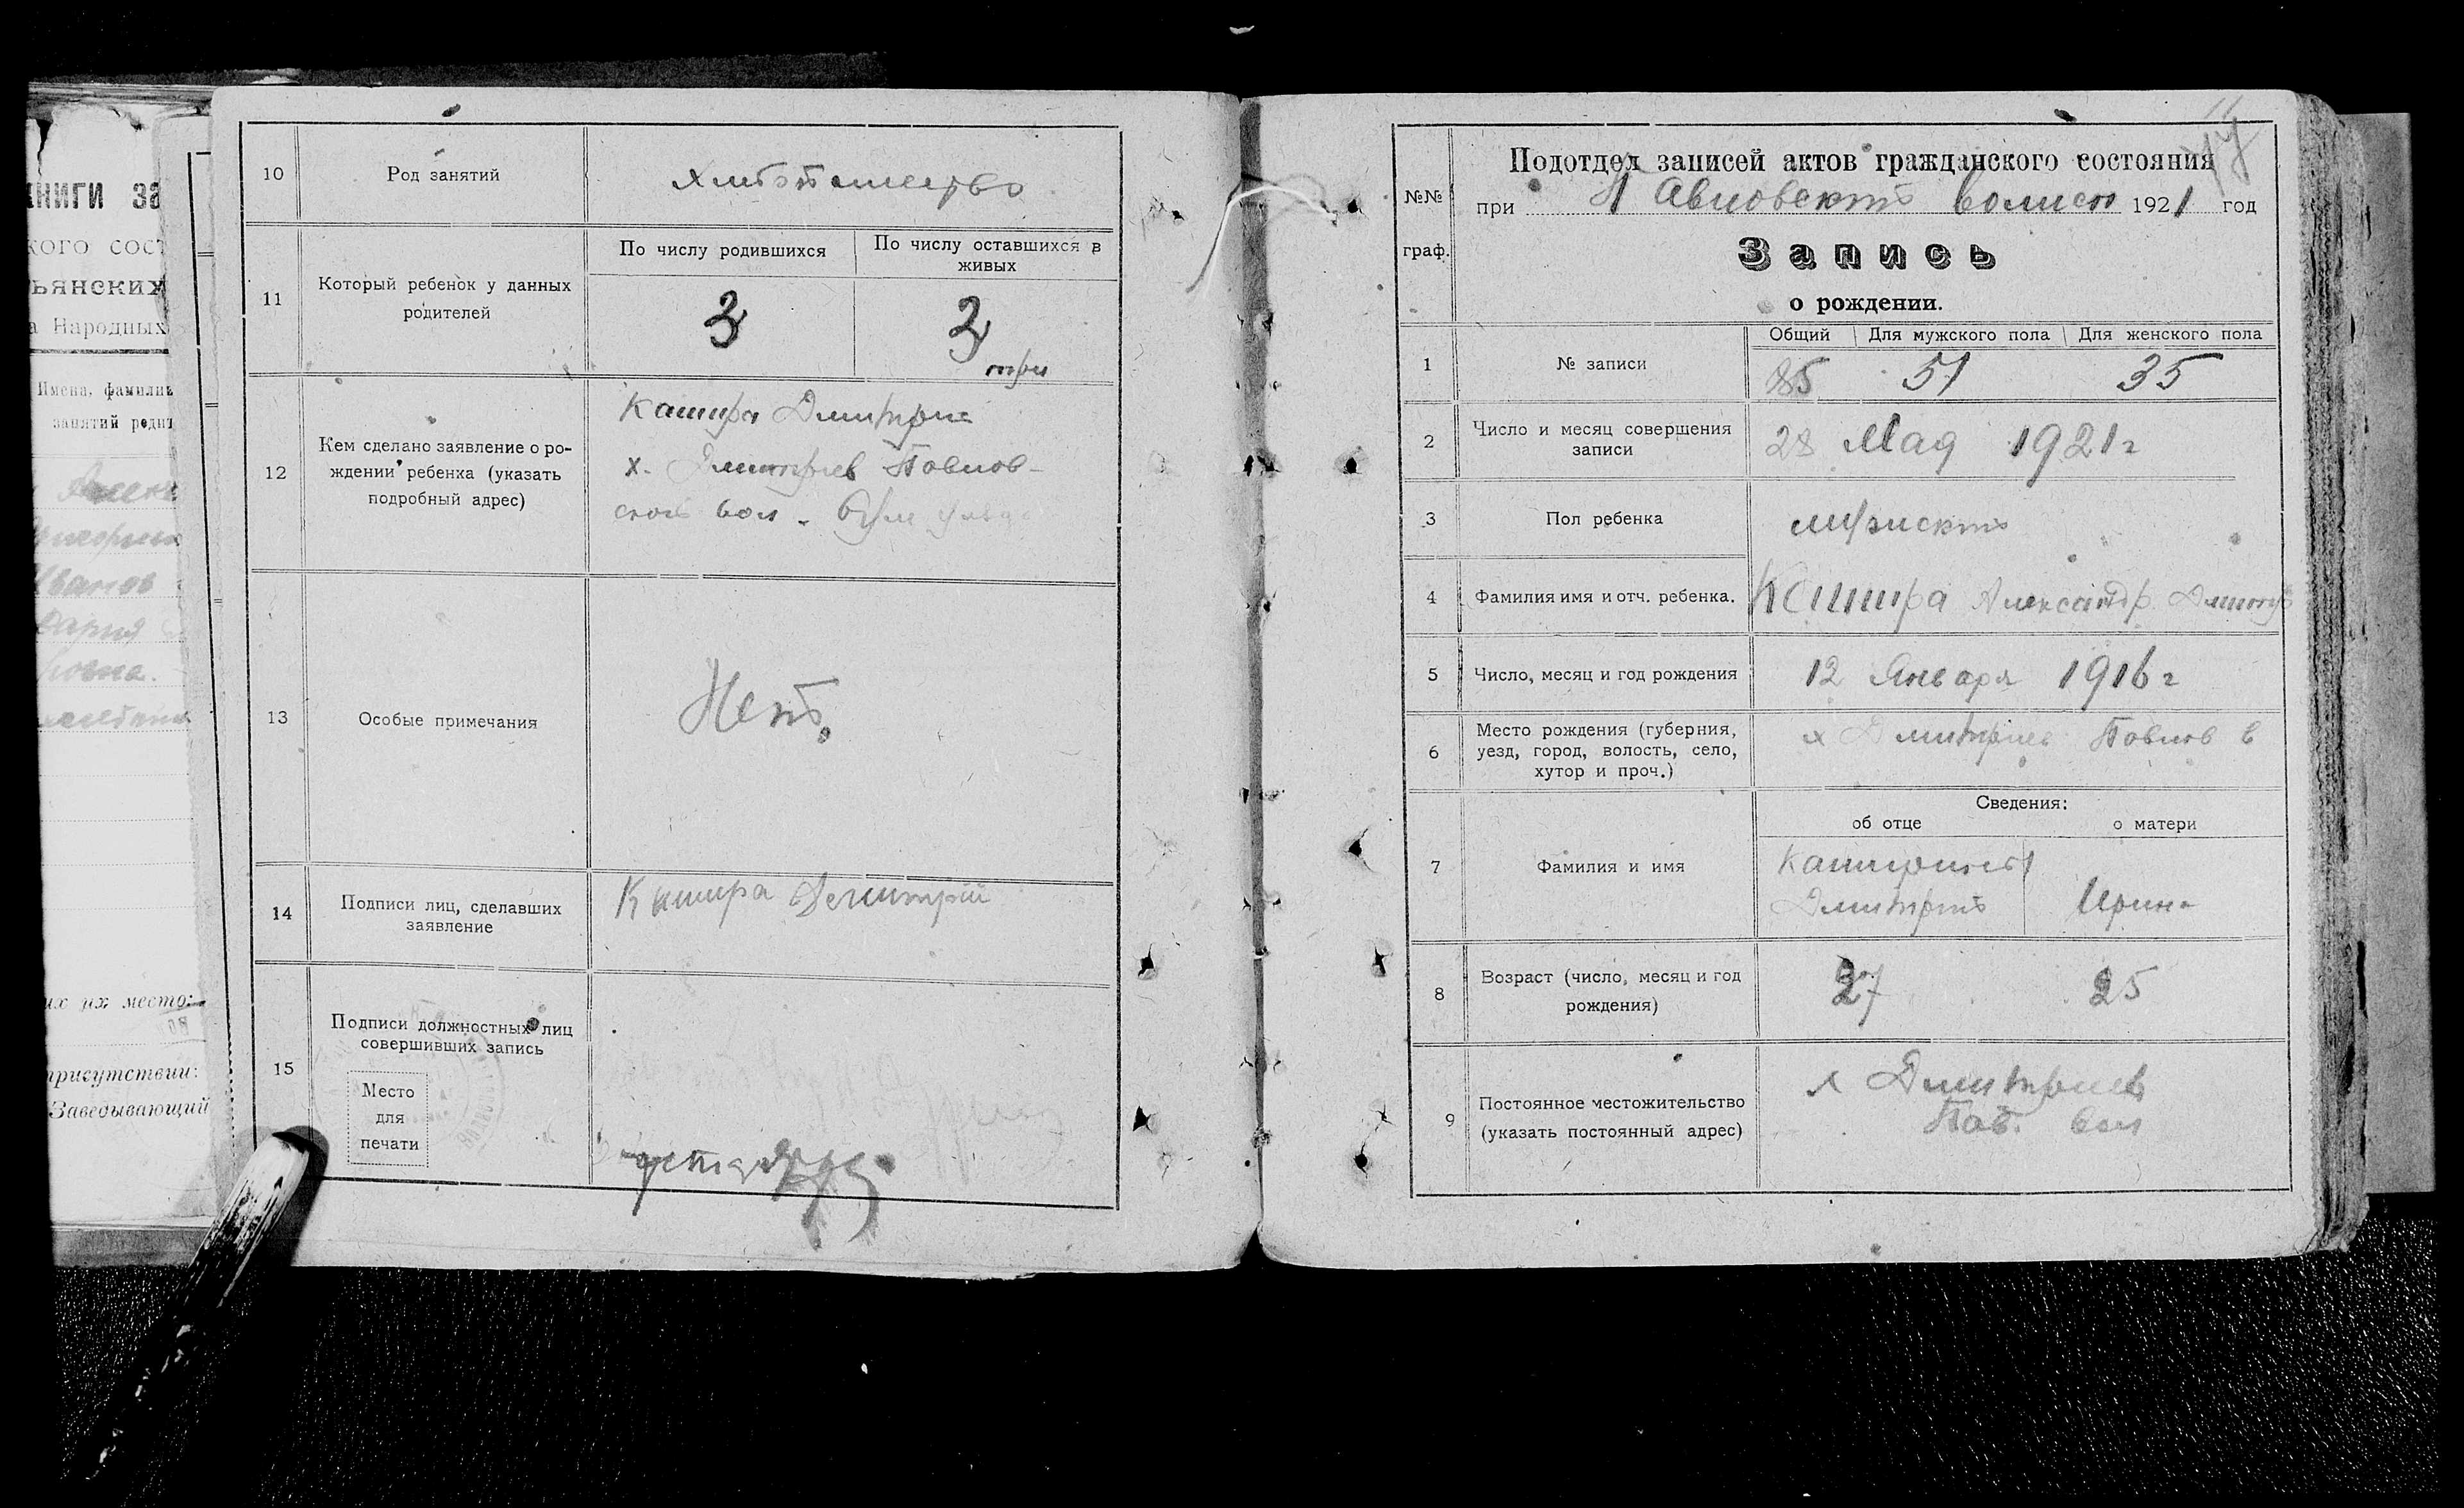 КНИГИ ЗА
кого сост
ьянских
а Народных
Имена, фамилия
занятий родит
Иванов
Дария
их их место:
присутствии:
Заведывающий
10 Род занятий
11 Который ребенок у данных
родителей
По числу родившихся
По числу оставшихся в
живых
3 3
три
12 Кем сделано заявление о ро-
ждении ребенка (указать
подробный адрес)
Кашира Дмитрий
х. Дмитриев Павлов-
ской вол.
13 Особые примечания
Нет.
14 Подписи лиц, сделавших
заявление
Кашира Демитрий
15 Подписи должностных лиц
совершивших запись
Место
для
печати
№№
граф.
Подотдел записей актов гражданского состояния
при Павловской волисп 1921 год
Запись
о рождении.
1 № записи
Общий Для мужского пола Для женского пола
85 51 35
2 Число и месяц совершения
записи
28 Мая 1921 г
3 Пол ребенка мужской
4 Фамилия имя и отч. ребенка. Кашира Александр Дмитр
5 Число, месяц и год рождения 12 Января 1916 г
6 Место рождения (губерния,
уезд, город, волость, село,
хутор и проч.)
х Дмитриев Павлов в
Сведения:
об отце о матери
7 Фамилия и имя
Дмитрий Ирина
8 Возраст (число, месяц и год
рождения)
27 25
9 Постоянное местожительство
(указать постоянный адрес)
х Дмитриев
Пав. вол